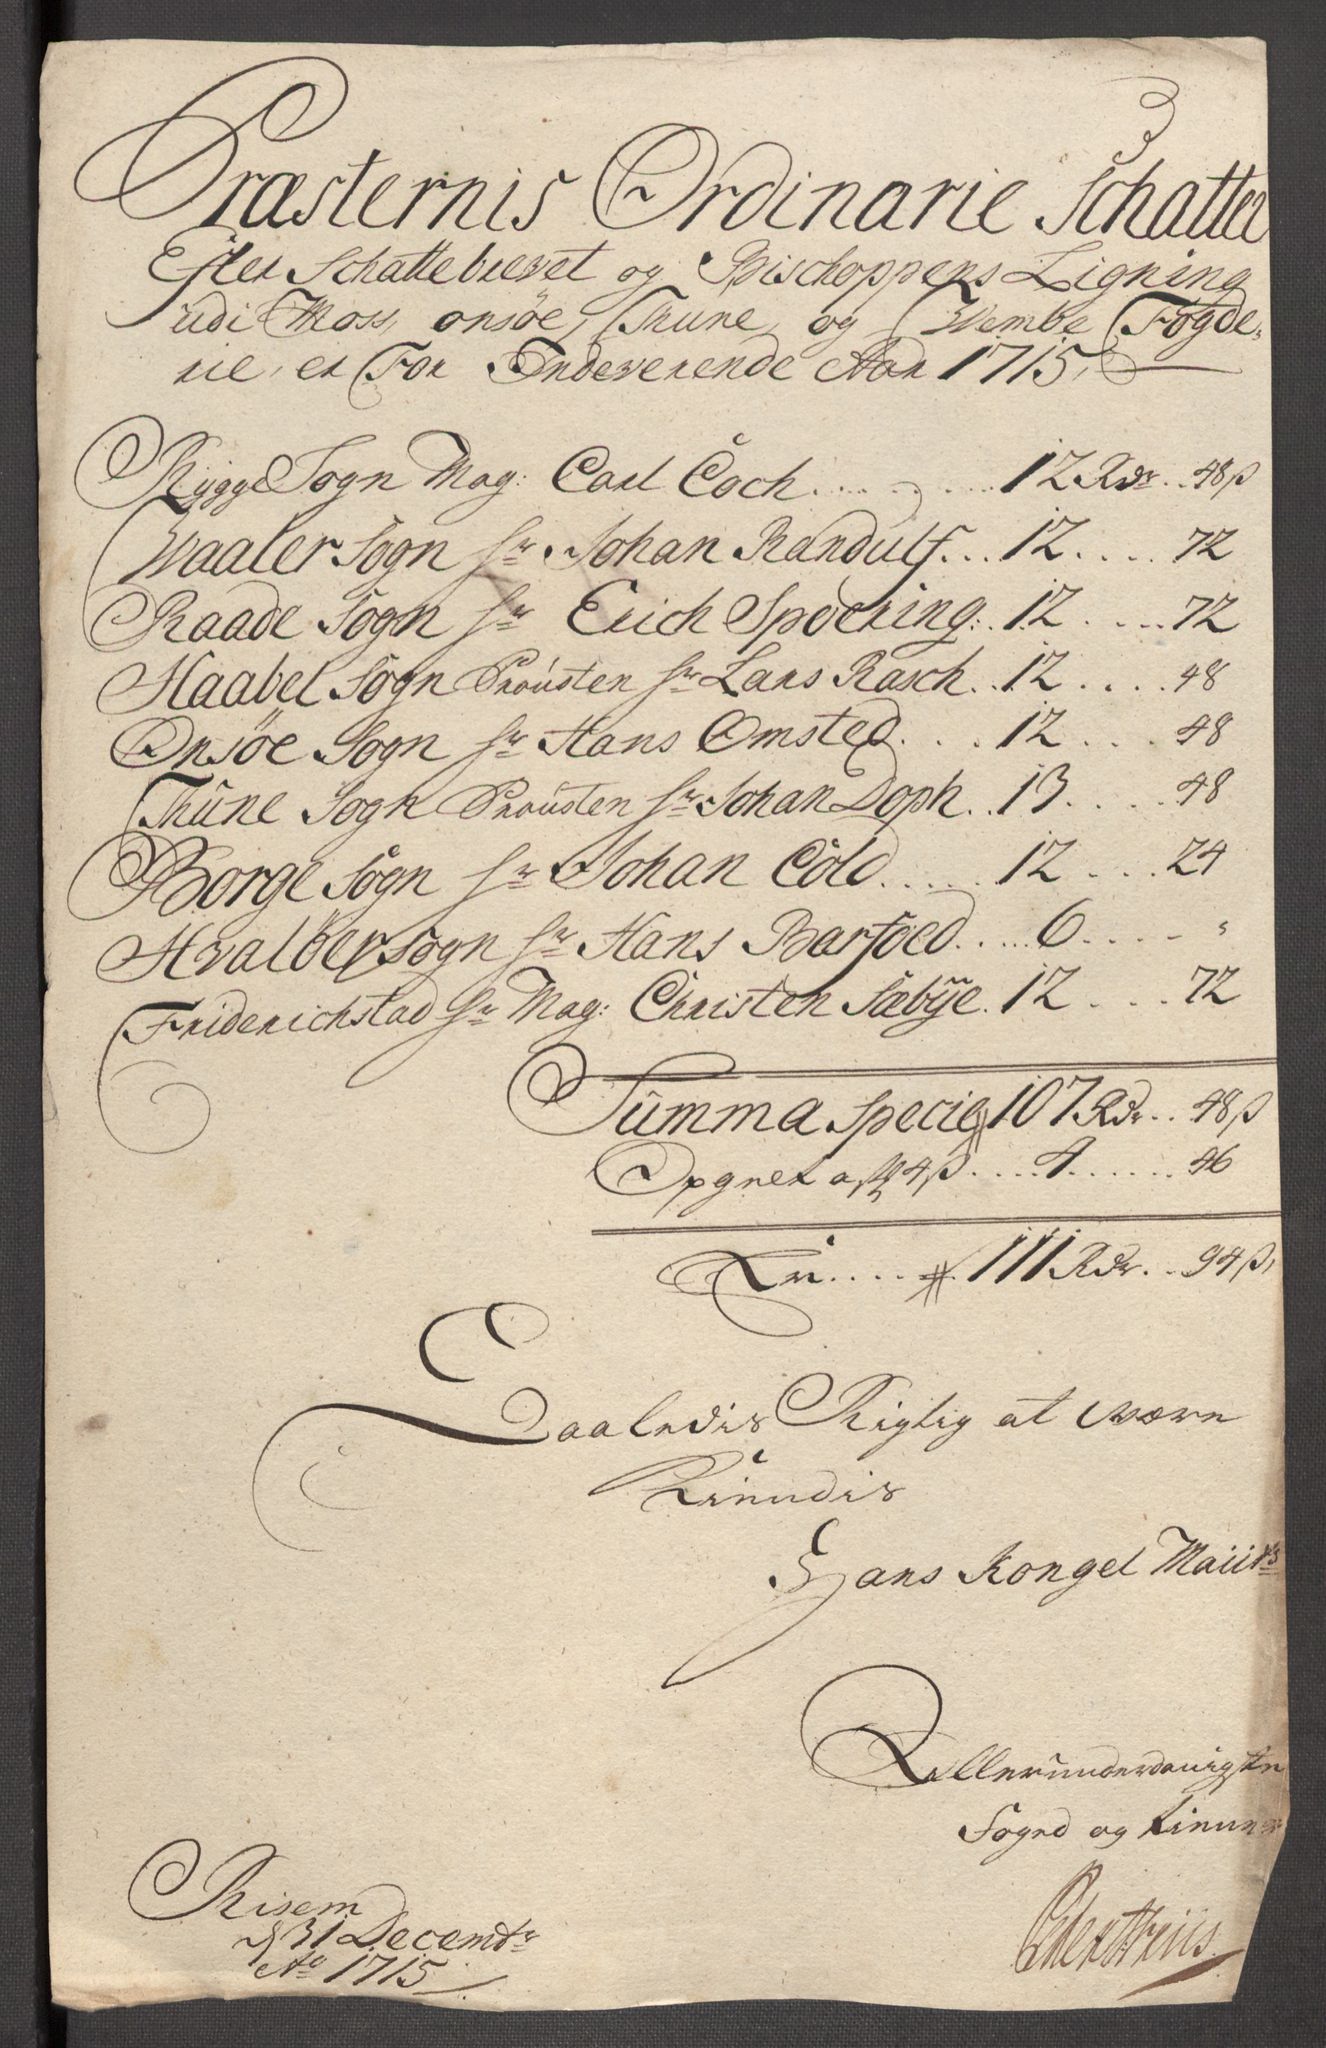 Præsternis Ordinarie Schatter
Efter Schattebrevet og Bischoppens Ligning
udi Moss, onsöe, Thune, og Wembe Fogde,
rie, er For Indeverende Aar 1715,
Rygge Sogn Mag: Carl Coch ..... 12 Rdr .. 48 ß
Waaler Sogn Hr Johan Randulf... 12 .... 72
Raade Sogn Hr Erich Spoering:.. 12 ..... 72
Haabel Sogn Proústen Hr Lars Rasch.. 12 .... 48
Onsöe Sogn Hr Hans Omsted.... 12 .... 48
Thune Sogn Proústen Hr Johan Doph.. 13 ..... 48
Borge Sogn Hr Johan Cold..... 12 .... 24
Hvalöer sogn Hr Hans Barfoed..... 6 .... "
Friderichstad Hr Mag: Christen Sæbÿe. 12 .... 72
Summa specie 107 Rdr .. 48 ß
Opgnet a 4 ß ..... 4 ...... 46
Er .... 111 Rdr .. 94 ß,
Saaledis Rigtig at være
Kiendis
Hans Kongel Maiits
Allerúnderdanigste
Foged og Tiener
Risem
d 31 Decembr
Ao 1715